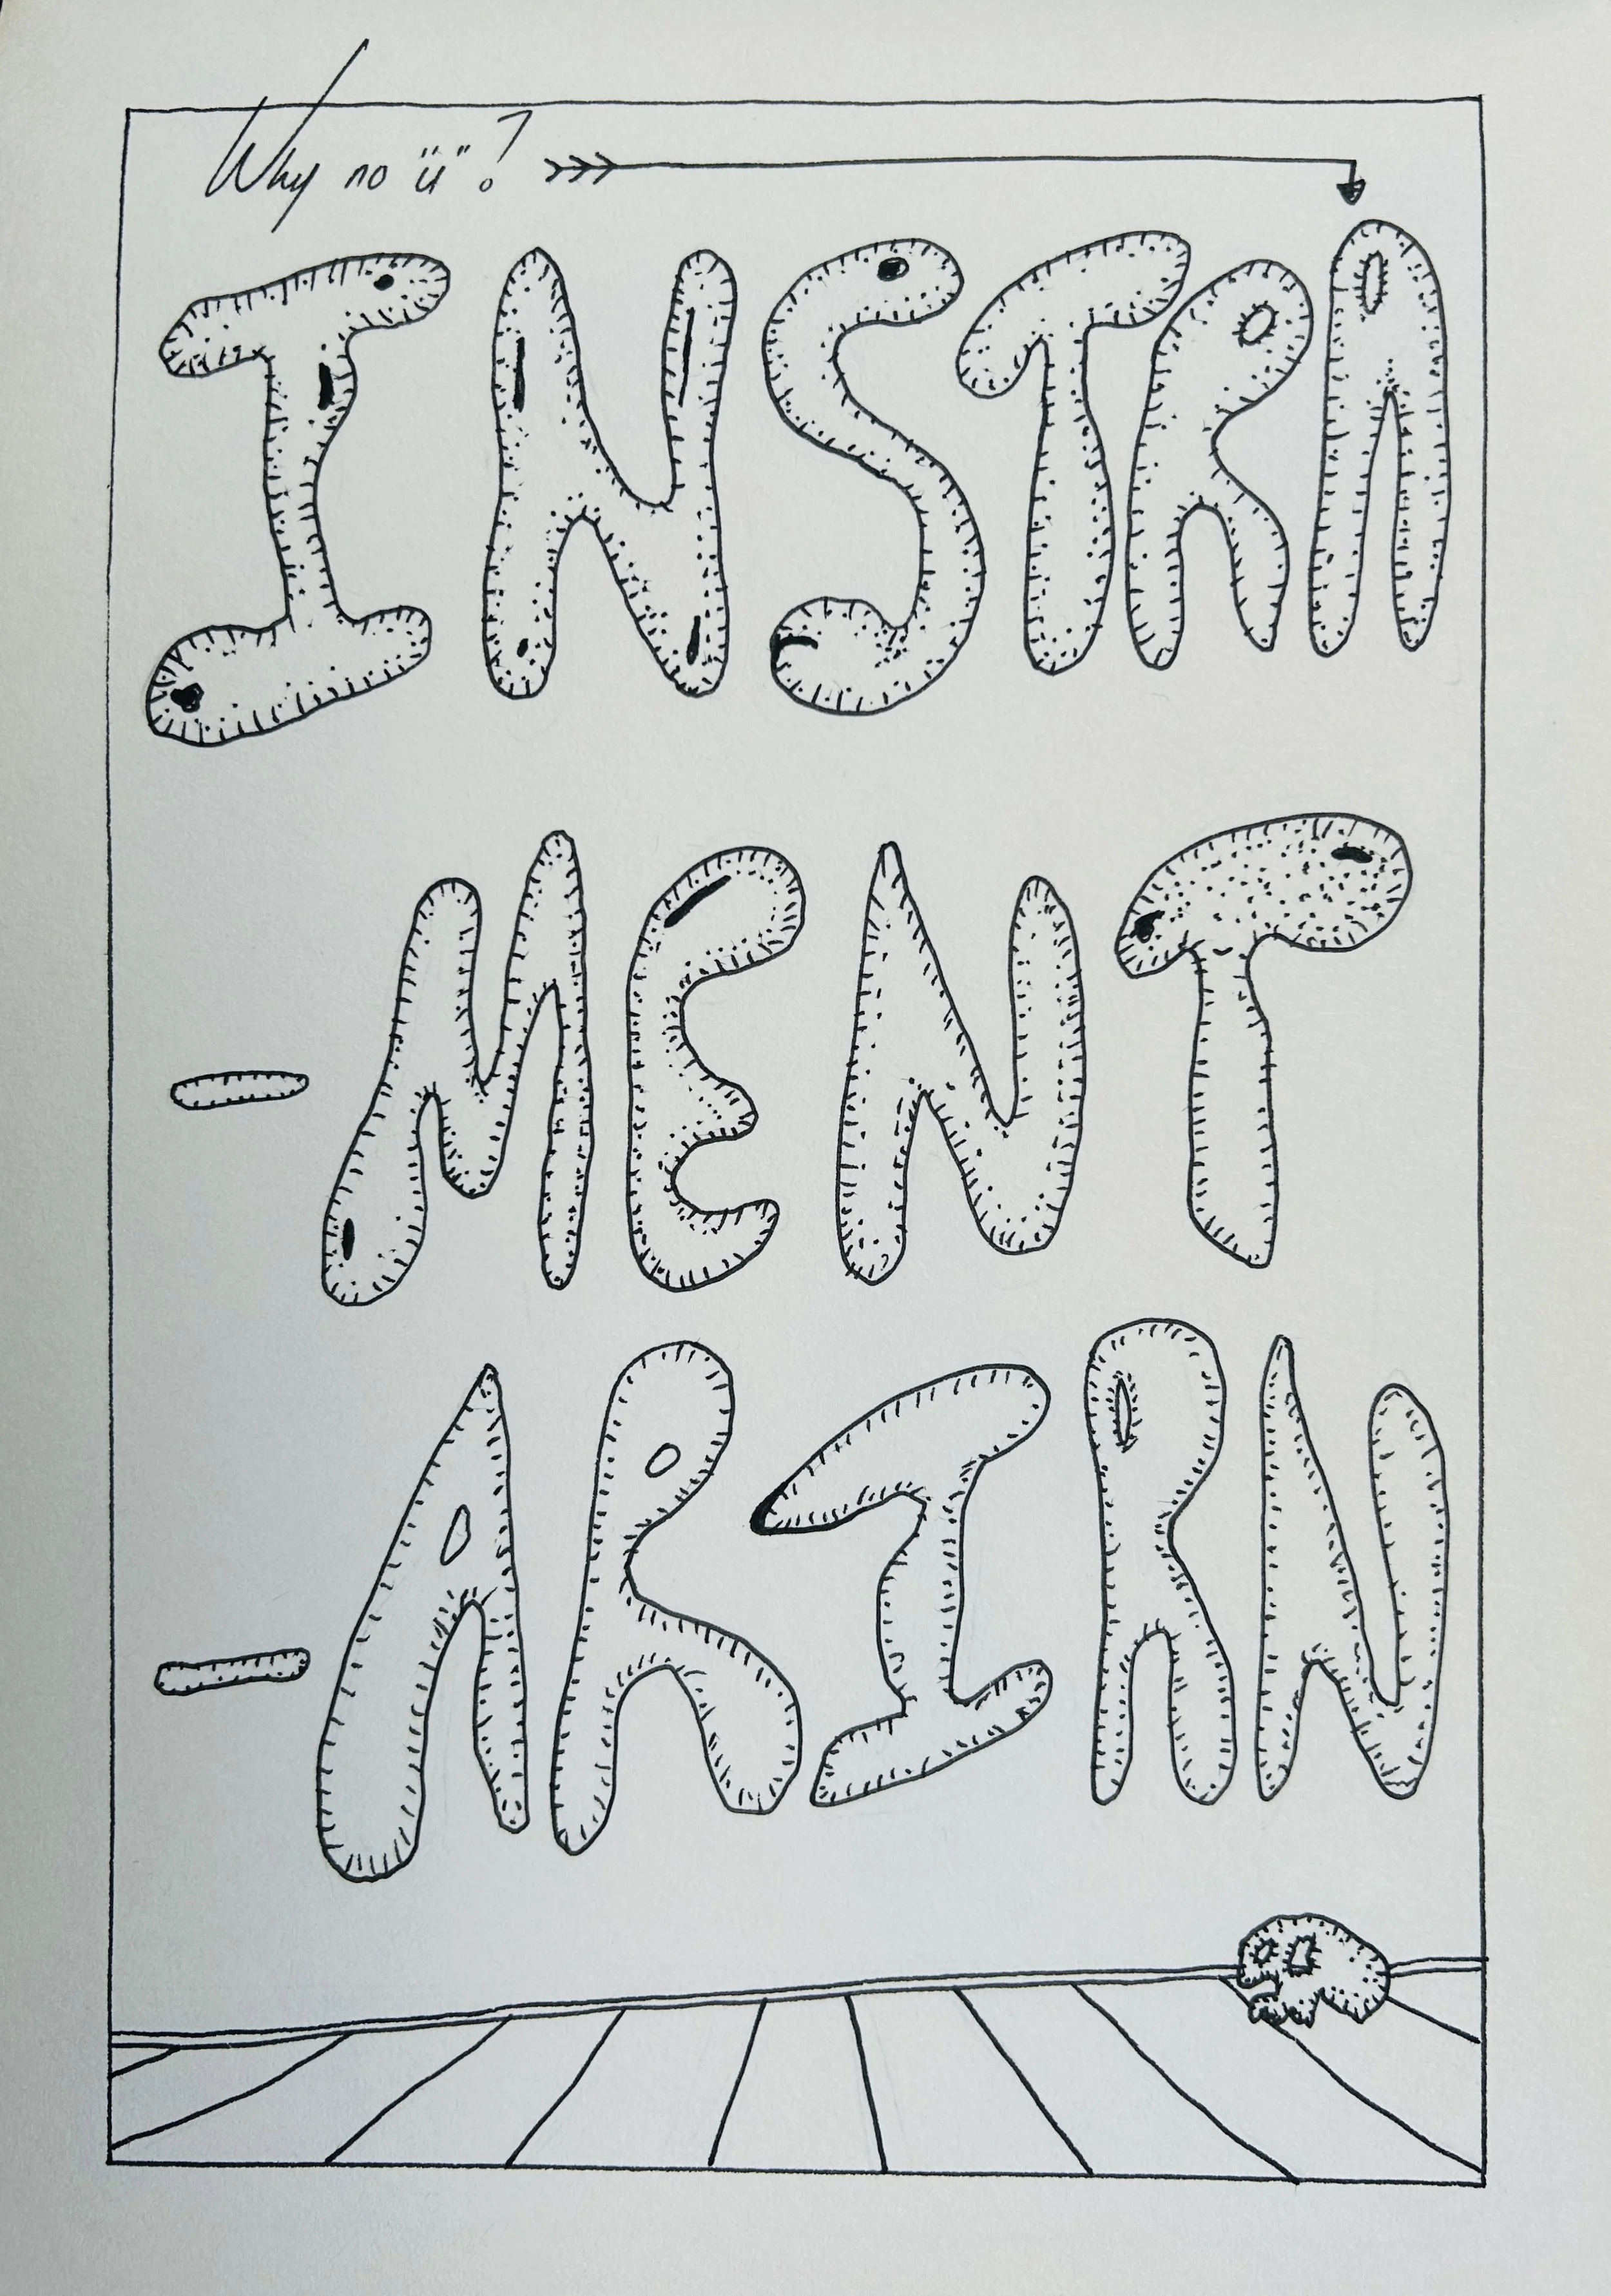 Why no "u"?
INSTRA
-MENT
-ARIRN